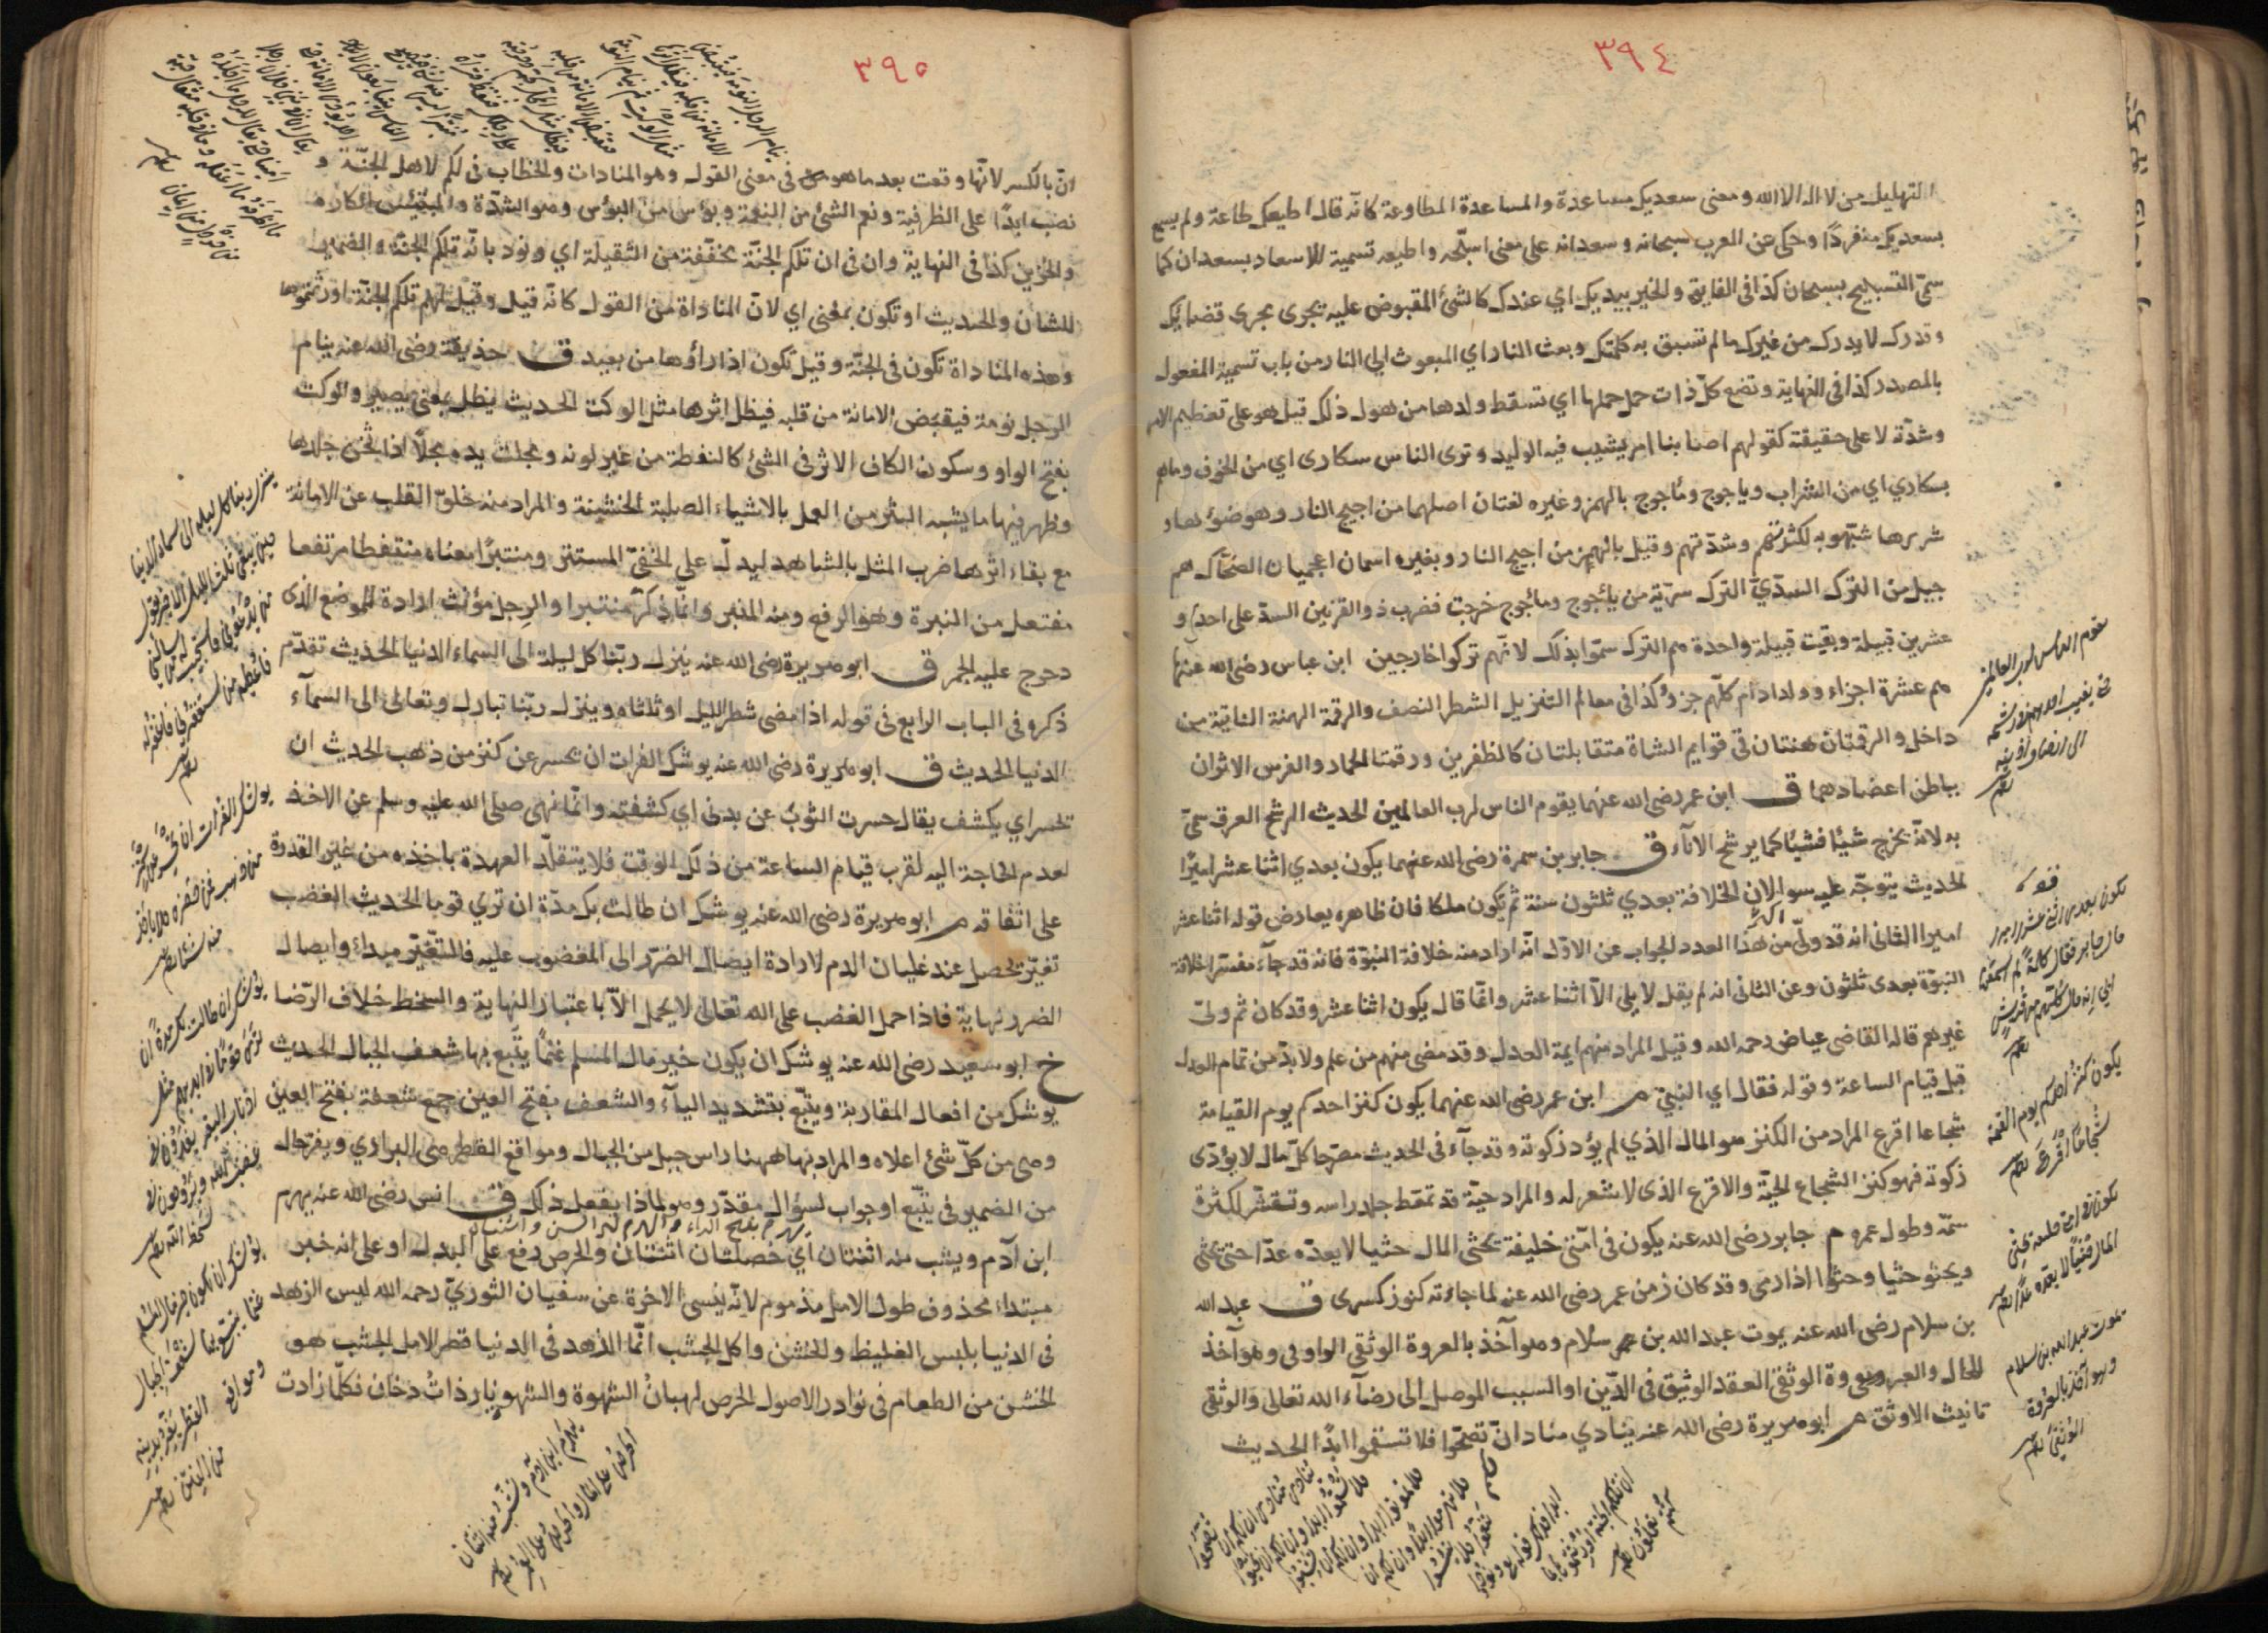 ٣٩٤
التهليل من لا اله الا الله ومعنى سعديك مساعدة والمساعدة المطاوعة كانه قال اطيعك طاعة ولم يسمع
بسعديك منفردًا وحكى عن العرب سبحانه وسعدانه على معنى اسبّحه واطيعه تسمية للاسعاد بسعدان كما
سمّى التسبيح بسبحان كذا فى الفايق والخير بيديك اي عندك كالشئ المقبوض عليه تجرى مجرى قضائك
وقدرك لا يدرك من غيرك مالم تسبق به كلمتك وبعث النار اي المبعوث الى النار من باب تسمية المفعول
بالمصدر كذا فى النهاية وتضع كلّ ذات حمل حملها اي تسقط ولدها من هول ذلك قيل هو على تعظيم الامر
وشدّته لا على حقيقته كقولهم اصابنا امر يشيب فيه الوليد وترى الناس سكارى اي من الخوف وماهم
بسكاري اي من الشراب وياجوج وماجوج بالهمز وغيره لغتان اصلهما من اجيج النار وهو ضوئها و
شررها شبّهو به لكثرتهم وشدّتهم وقيل بالهمز من اجيج النار وبغيره اسمان اعجميان الضحّاك هم
جيل من الترك السدّيّ الترك سريّة من يأجوج ومأجوج خرجت فضرب ذو القرنين السدّ على احدي و
عشرين قبيلة وبقيت قبيلة واحدة هم الترك سمّوا بذلك لانّهم تركوا خارجين ابن عباس رضى الله عنهما
هم عشرة اجزاء وولد ادم كلّهم جزؤ كذا فى معالم التنزيل الشطر النصف والرقمة الهنة الناتية من
داخل والرقمتان هنتان فى قوايم الشاة متقابلتان كالظفرين ورقمتا الحمار والفرس الاثران
بباطن اعضادهما ق ابن عمر رضى الله عنهما يقوم الناس لرب العالمين الحديث الرشح العرق سمّى
به لانّه يخرج شيئًا فشيئًا كما يرشح الاناء ق جابر بن سمرة رضى الله عنهما يكون بعدي اثنا عشر اميرًا
الحديث يتوجّه عليه سوالان الخلافة بعدي ثلثون سنة ثم يكون ملكا فان ظاهره يعارض قوله اثنا عشر
اميرا الثانى انه قد ولّى اكثر من هذا العدد الجواب عن الاوّل انّه اراد منه خلافة النبوّة فانه قد جآء مفسّرا خلافة
النبوّة بعدى ثلثون وعن الثانى انه لم يقل لا يلى الّا اثنا عشر وانّما قال يكون اثنا عشر وقد كان ثم ولىّ
غيرهم قاله القاضى عياض رحمه الله وقيل المراد منهم ايمة العدل وقد مضى منهم من علم ولا بدّ من تمام العدد
قبل قيام الساعة وقوله فقال اي النبيّ م ابن عمر رضى الله عنهما يكون كنز احدكم يوم القيامة
شجاعا اقرع المراد من الكنز هو المال الذي لم يؤد زكوته وقد جآء فى الحديث مصرّحا كلّ مال لا يؤدّى
زكوته فهو كنز الشجاع الحيّة والاقرع الذى لا شعر له والمراد حيّة قد تمعّط جلد راسه وتقشّر لكثرة
سمّه وطول عمره م جابر رضى الله عنه يكون فى امّتى خليفة يحثى المال حثيا لا يعدّه عدّا حتى يحثى
ويحثو حثيا وحثوا اذا رمى وقد كان زمن عمر رضى الله عنه لما جاءته كنوز كسرى ق عبد الله
بن سلام رضى الله عنه يموت عبد الله بن سلام وهو آخذ بالعروة الوثقى الواو فى وهو آخذ
للحال والعروة الوثقى العقد الوثيق فى الدّين او السبب الموصل الى رضآء الله تعالى والوثقى
تانيث الاوثق م ابو هريرة رضى الله عنه ينادي مناد انّ لكم تصحّوا فلا تسقموا ابدًا الحديث
يقوم الناس لرب العالمين
حتى يغيب احدهم فى رشحه
الى انصاف اذنيه
يكون بعدى اثنى عشر اميرا
قال جابر فقال كلمة لم اسمعها
ابي انه قال كلّهم من قريش
يكون كنز احدكم يوم القيمة
شجاعًا اقرع
يكون فى امتى خليفة يحثى
المال حثيًا لا يعدّه عدًّا
يموت عبد الله بن سلام
وهو آخذ بالعروة
الوثقى
٣٩٥
انّ بالكسر لانّها وقعت بعد ما هو فى معنى القول وهو المنادات والخطاب فى لكم لاهل الجنّة و
نصب ابدًا على الظرفية ونعم الشئ من النعمة وبؤس من البؤس وهو الشدّة والمبتئس الكاره
والحزين كذا فى النهاية وان فى ان تلكم الجنّة مخفّفة من الثقيلة اي ونود بانّه تلكم الجنّة والضمير
للشان والحديث او تكون بمعنى اي لانّ المناداة من القول كانّه قيل وقيل لهم تلكم الجنّة اورثتموها
وهذه المناداة تكون فى الجنّة وقيل تكون اذا راؤها من بعيد ق حذيفة رضى الله عنه ينام
الرجل نومة فيقبض الامانة من قلبه فيظل اثرها مثل الوكت الحديث يظل بمعنى يصير والوكت
بفتح الواو وسكون الكاف الاثر فى الشئ كالنقطة من غير لونه ومجلت يده مجلًا اذا ثخن جلدها
وظهر فيها ما يشبه البثر من العمل بالاشياء الصلبة الخشينة والمراد منه خلوّ القلب عن الامانة
مع بقاء اثرها ضرب المثل بالشاهد ليدلّ على الخفىّ المستتر ومنتبرًا معناه منتفطا مرتفعا
مفتعل من النبرة وهو الرفع ومنه المنبر وانّما ذكّر منتبرا والرجل مؤنث ارادة الموضع الذى
دحرج عليه الجمر ق ابو هريرة رضى الله عنه ينزل ربّنا كل ليلة الى السماء الدنيا الحديث تقدّم
ذكره فى الباب الرابع فى قوله اذا مضى شطر الليل او ثلثاه وينزل ربّنا تبارك وتعالى الى السمآء
الدنيا الحديث ق ابو هريرة رضى الله عنه يوشك الفرات ان يحسر عن كنز من ذهب الحديث ان
تحسر اي يكشف يقال حسرت الثوب عن بدنى اي كشفته وانّما نهى صلى الله عليه وسلم عن الاخذ
لعدم الحاجة اليه لقرب قيام الساعة من ذلك الوقت فلا يتقلّد العهدة باخذه من غير القدرة
على انفاقه م ابو هريرة رضى الله عنه يوشك ان طالت بك مدّة ان تري قوما الحديث الغضب
تغيّر يحصل عند غليان الدم لارادة ايصال الضرر الى المغضوب عليه فالتغيّر مبداء وايصال
الضرر نهاية فاذا حمل الغضب على الله تعالى لا يحمل الّا باعتبار النهاية والسخط خلاف الرّضا
خ ابو سعيد رضى الله عنه يوشك ان يكون خير مال المسلم غنمًا يتّبع بها شعف الجبال الحديث
يوشك من افعال المقاربة ويتّبع بتشديد التآء والشعف بفتح العين جمع شعفة بفتح العين
وهى من كلّ شئ اعلاه والمراد بها ههنا راس جبل من الجبال ومواقع القطر هى البراري ويفرّ حال
من الضمير فى يتّبع او جواب لسؤال مقدّر وهو لماذا يفعل ذلك ق انس رضى الله عنه يهرم
يهرم بفتح الراء والهرم كبر السن
ابن آدم ويشب منه اثنتان اي خصلتان اثنتان والحرص رفع على البدل او على انه خبر
مبتداء محذوف طول الامل مذموم لانّه ينسى الاخرة عن سفيان الثوريّ رحمه الله ليس الزهد
فى الدنيا بلبس الغليظ والخشن واكل الجشب انّما الزهد فى الدنيا قصر الامل الجشب هو
الخشن من الطعام فى نوادر الاصول الحرص لهبان الشهوة والشهوة نار ذات دخان فكلّما زادت
ينزل ربنا كل ليلة الى سماء الدنيا
حين يبقى ثلث الليل الاخر يقول
من يدعونى فاستجيب له من يسالنى
فاعطيه من يستغفرنى فاغفر له
يوشك الفرات ان يحسر عن كنز
من ذهب فمن حضره فلا ياخذ
منه شيئا
يوشك ان طالت بك مدة ان
ترى قومًا فى ايديهم مثل
اذناب البقر يغدون فى
غضب الله ويروحون فى
سخط الله
يوشك ان يكون خير مال المسلم
غنما يتبع بها شعف الجبال
ومواقع القطر يفر بدينه
من الفتن
يهرم ابن آدم ويشب منه اثنتان
الحرص على المال والحرص على العمر